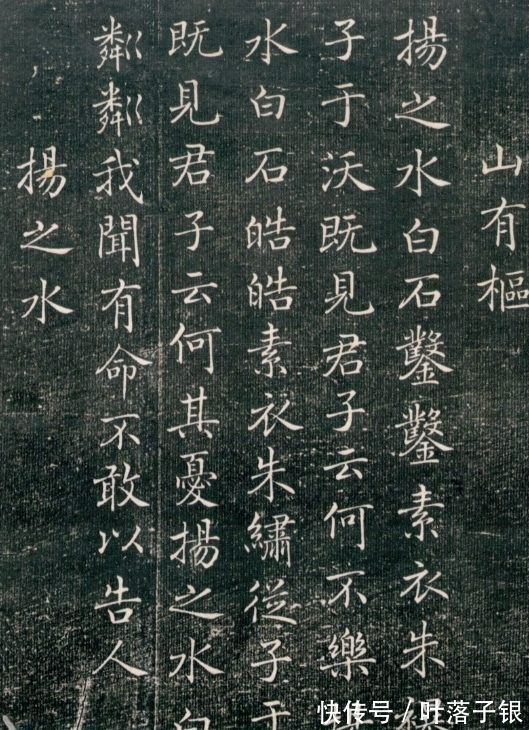 山有樞
揚之水白石鑿鑿素衣朱
子于沃既見君子云何不樂
水白石皓皓素衣朱繡從子于
既見君子云何其憂揚之水白
粼粼我聞有命不敢以告人
揚之水
快传号/叶落子银